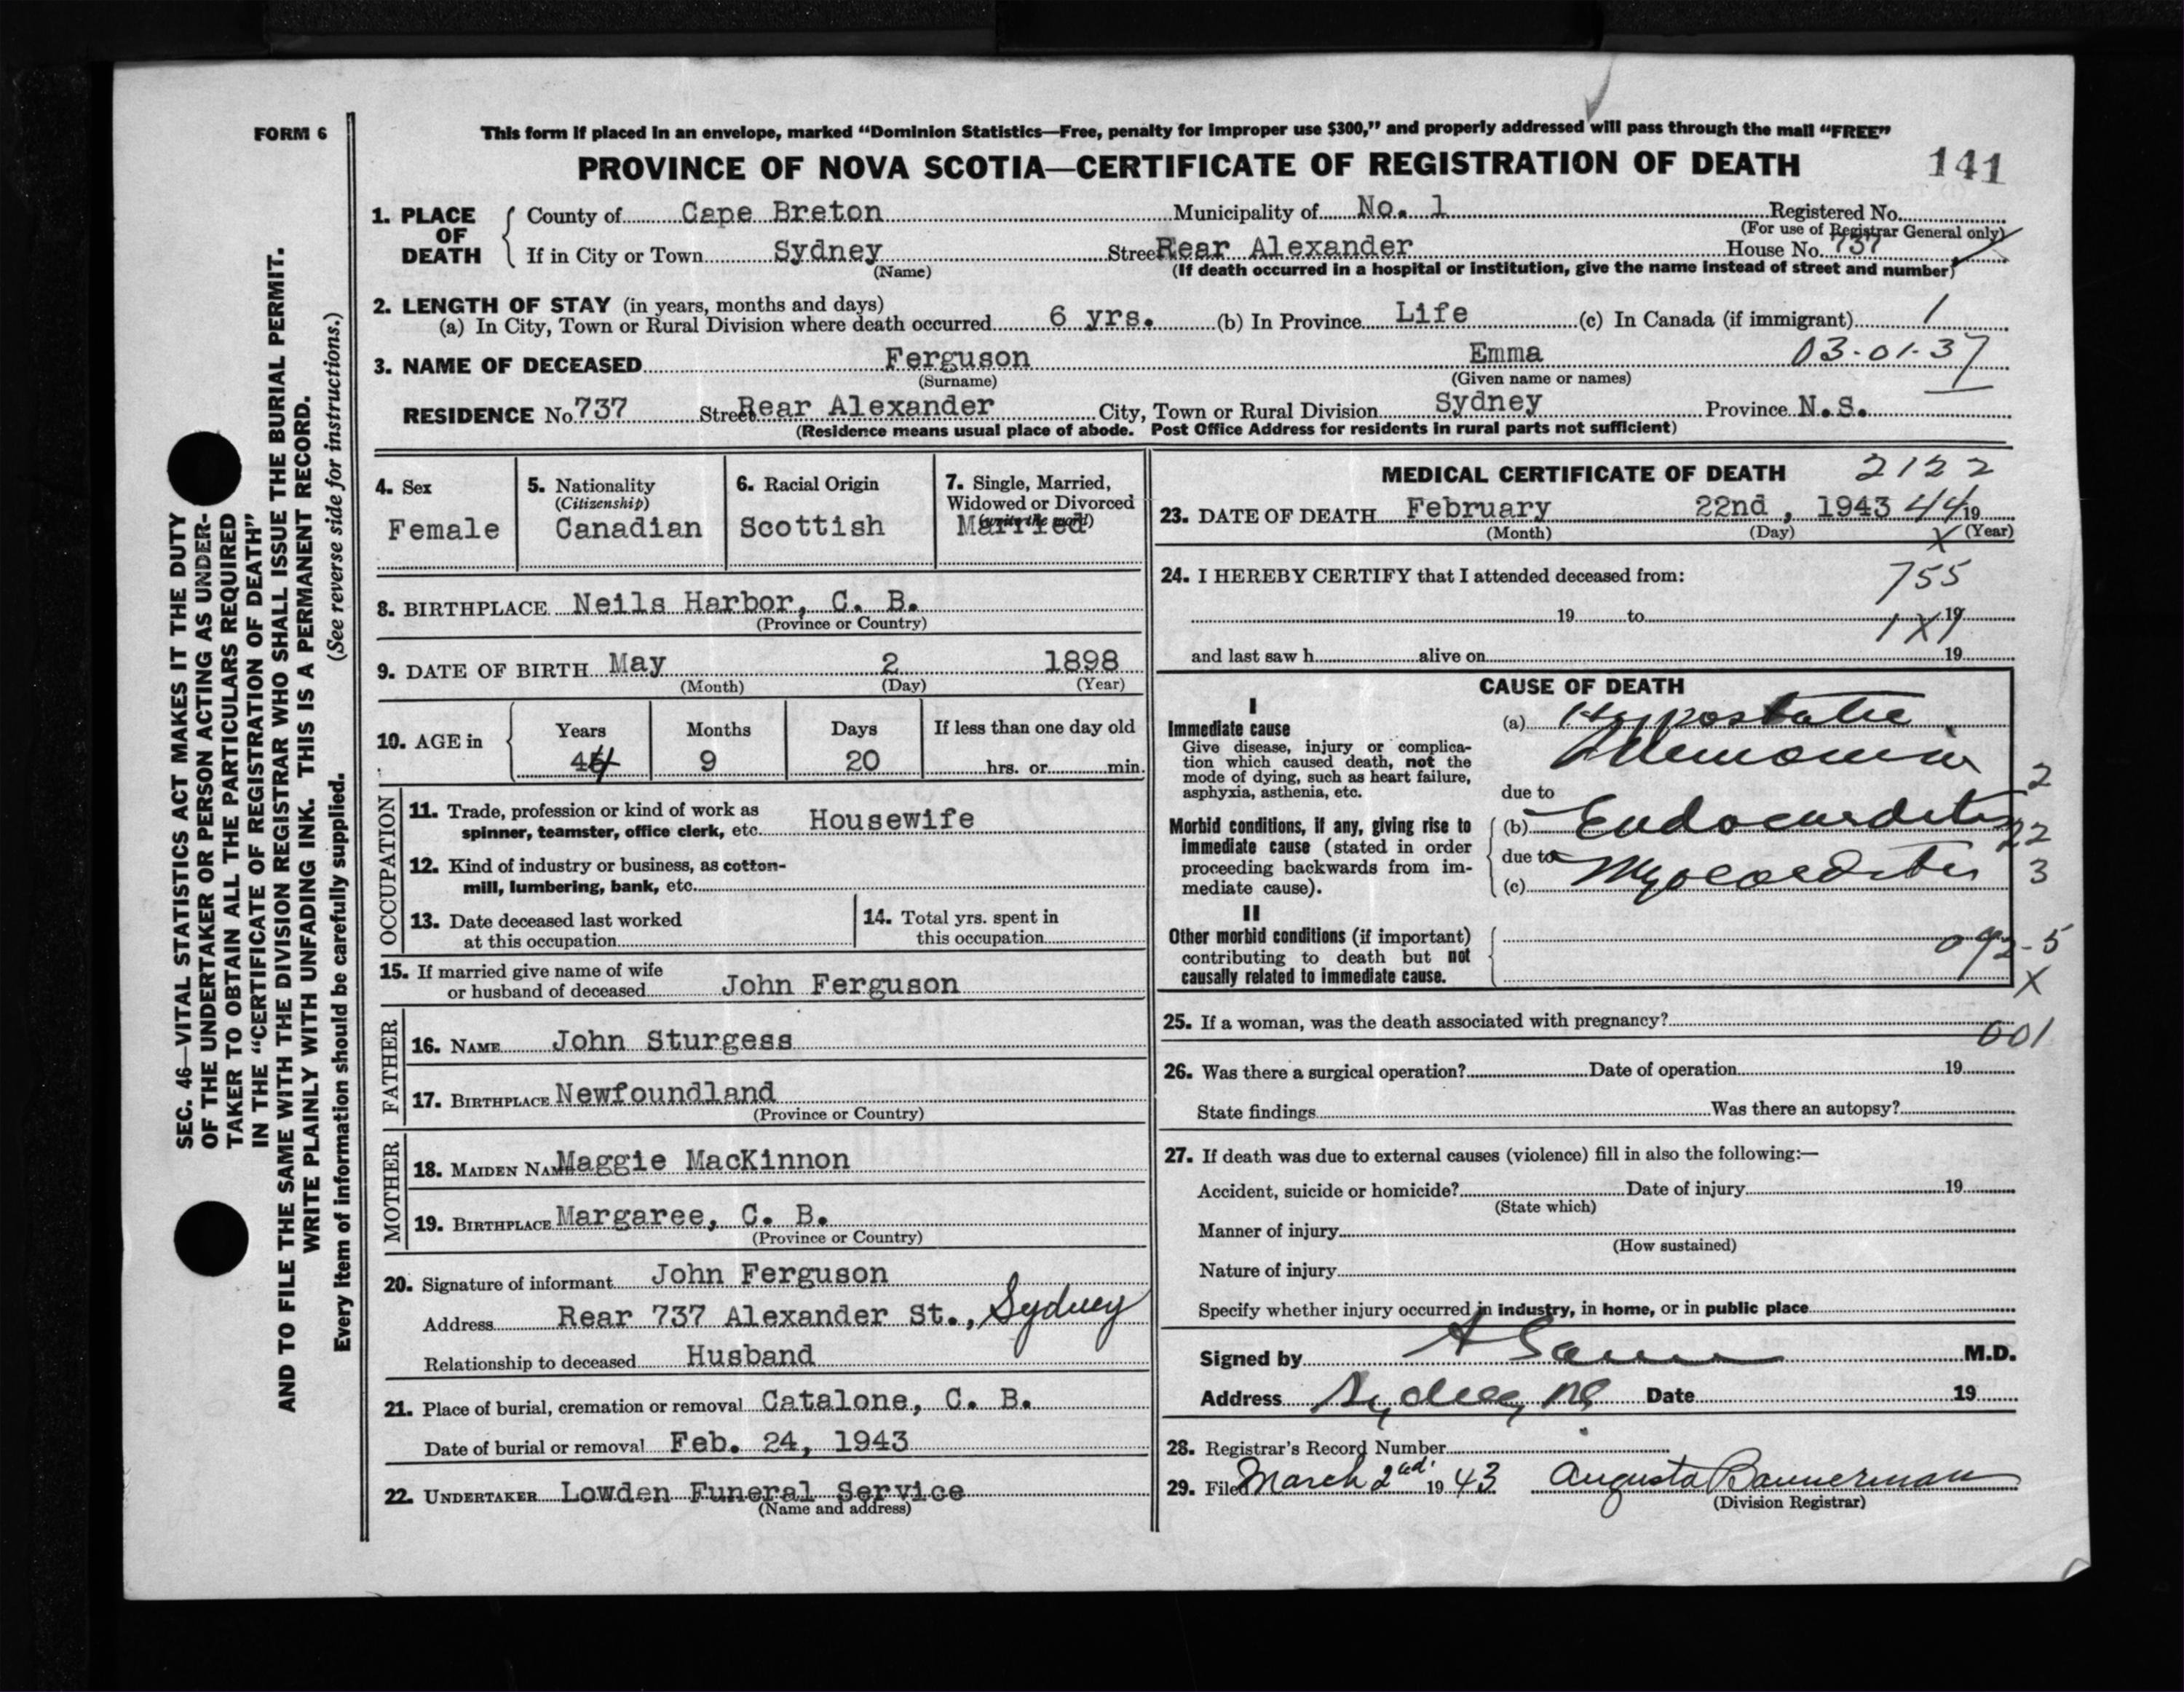 FORM 6
SEC. 46—VITAL STATISTICS ACT MAKES IT THE DUTY
OF THE UNDERTAKER OR PERSON ACTING AS UNDER-
TAKER TO OBTAIN ALL THE PARTICULARS REQUIRED
IN THE "CERTIFICATE OF REGISTRATION OF DEATH"
AND TO FILE THE SAME WITH THE DIVISION REGISTRAR WHO SHALL ISSUE THE BURIAL PERMIT.
WRITE PLAINLY WITH UNFADING INK. THIS IS A PERMANENT RECORD.
Every item of information should be carefully supplied. (See reverse side for instructions.)
This form if placed in an envelope, marked "Dominion Statistics—Free, penalty for improper use $300," and properly addressed will pass through the mail "FREE"
PROVINCE OF NOVA SCOTIA—CERTIFICATE OF REGISTRATION OF DEATH 141
1. PLACE OF DEATH County of Cape Breton Municipality of No. 1 Registered No.
(For use of Registrar General only)
If in City or Town Sydney Street Rear Alexander House No. 737
(Name) (If death occurred in a hospital or institution, give the name instead of street and number)
2. LENGTH OF STAY (in years, months and days)
(a) In City, Town or Rural Division where death occurred 6 yrs. (b) In Province Life (c) In Canada (if immigrant) 1
3. NAME OF DECEASED Ferguson Emma 03-01-37
(Surname) (Given name or names)
RESIDENCE No 737 Street Rear Alexander City, Town or Rural Division Sydney Province N.S.
(Residence means usual place of abode. Post Office Address for residents in rural parts not sufficient)
4. Sex
Female
5. Nationality
(Citizenship)
Canadian
6. Racial Origin
Scottish
7. Single, Married,
Widowed or Divorced
(write the word)
Married
8. BIRTHPLACE Neils Harbor, C. B.
(Province or Country)
9. DATE OF BIRTH May 2 1898
(Month) (Day) (Year)
10. AGE in Years Months Days If less than one day old
44 9 20 hrs. or min.
OCCUPATION
11. Trade, profession or kind of work as
spinner, teamster, office clerk, etc. Housewife
12. Kind of industry or business, as cotton-
mill, lumbering, bank, etc.
13. Date deceased last worked
at this occupation
14. Total yrs. spent in
this occupation
15. If married give name of wife
or husband of deceased John Ferguson
FATHER
16. NAME John Sturgess
17. BIRTHPLACE Newfoundland
(Province or Country)
MOTHER
18. MAIDEN NAME Maggie MacKinnon
19. BIRTHPLACE Margaree, C. B.
(Province or Country)
20. Signature of informant John Ferguson
Address Rear 737 Alexander St., Sydney
Relationship to deceased Husband
21. Place of burial, cremation or removal Catalone, C. B.
Date of burial or removal Feb. 24, 1943
22. UNDERTAKER Lowden Funeral Service
(Name and address)
MEDICAL CERTIFICATE OF DEATH 2122
23. DATE OF DEATH February 22nd, 1943 44 19
(Month) (Day) X (Year)
24. I HEREBY CERTIFY that I attended deceased from: 755
19 to 19
1X1
and last saw h alive on 19
CAUSE OF DEATH
I
Immediate cause
Give disease, injury or complica-
tion which caused death, not the
mode of dying, such as heart failure,
asphyxia, asthenia, etc.
(a) Hypostatic
Pneumonia 2
due to
Morbid conditions, if any, giving rise to
immediate cause (stated in order
proceeding backwards from im-
mediate cause).
(b) Endocarditis 22
due to
(c) Myocarditis 3
II
Other morbid conditions (if important)
contributing to death but not
causally related to immediate cause.
092-5
X
25. If a woman, was the death associated with pregnancy?
001
26. Was there a surgical operation? Date of operation 19
State findings Was there an autopsy?
27. If death was due to external causes (violence) fill in also the following:—
Accident, suicide or homicide? Date of injury 19
(State which)
Manner of injury
(How sustained)
Nature of injury
Specify whether injury occurred in industry, in home, or in public place
Signed by A M.D.
Address Sydney NS Date 19
28. Registrar's Record Number
29. Filed March 2nd. 1943 Augusta Bannerman
(Division Registrar)